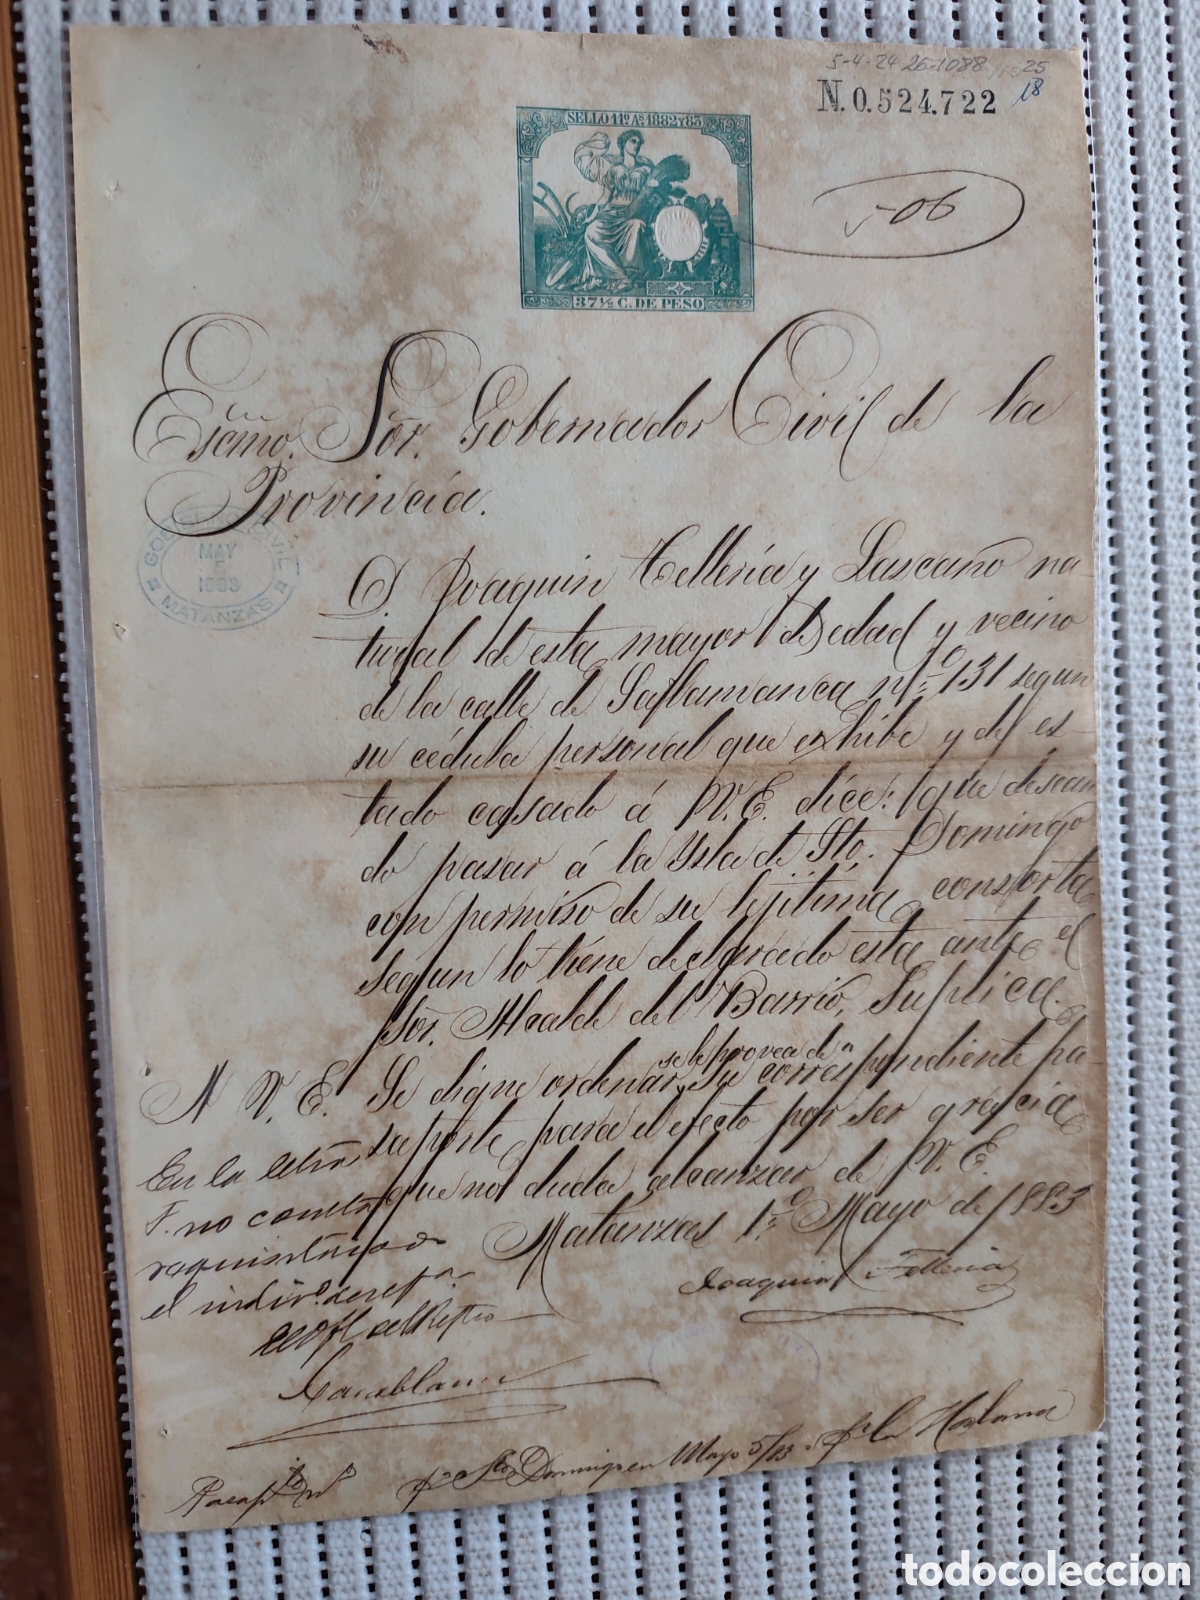 5-4-24 26-1088 25
18
N.0.524.722
SELLO 11º As. 1882 Y 83
37½ C. DE PESO
506
Escmo. Sor. Gobernador Civil de la
Provincia.
GOBIERNO CIVIL
MAY
5
1883
MATANZAS
D. Joaquin Telleria y Lazcano na-
tural de esta mayor de edad y vecino
de la calle de Saflamanca nº 131 segun
su cédula personal que exhibe y de es-
tado casado á V.E. dice: que desean
do pasar á la Ysla de Sto. Domingo
con permiso de su lejitima consorte
segun lo tiene otorgado esta ante el
Sor. Alcalde del Barrio, Suplica
A V.E. Se digne ordenar se le provea de su correspondiente pa-
saporte para el efecto por ser gracia
que no duda alcanzar de V.E.
Matanzas 1º Mayo de 1883
Joaquin Telleria
En la letra
F. no consta
requisitoriado
el indivº. de refª.
El Ofl del Regtro
Casablanca
Pasapte nº
pª Sto Domingo en Mayo 5/83 pr la Habana
todocoleccion